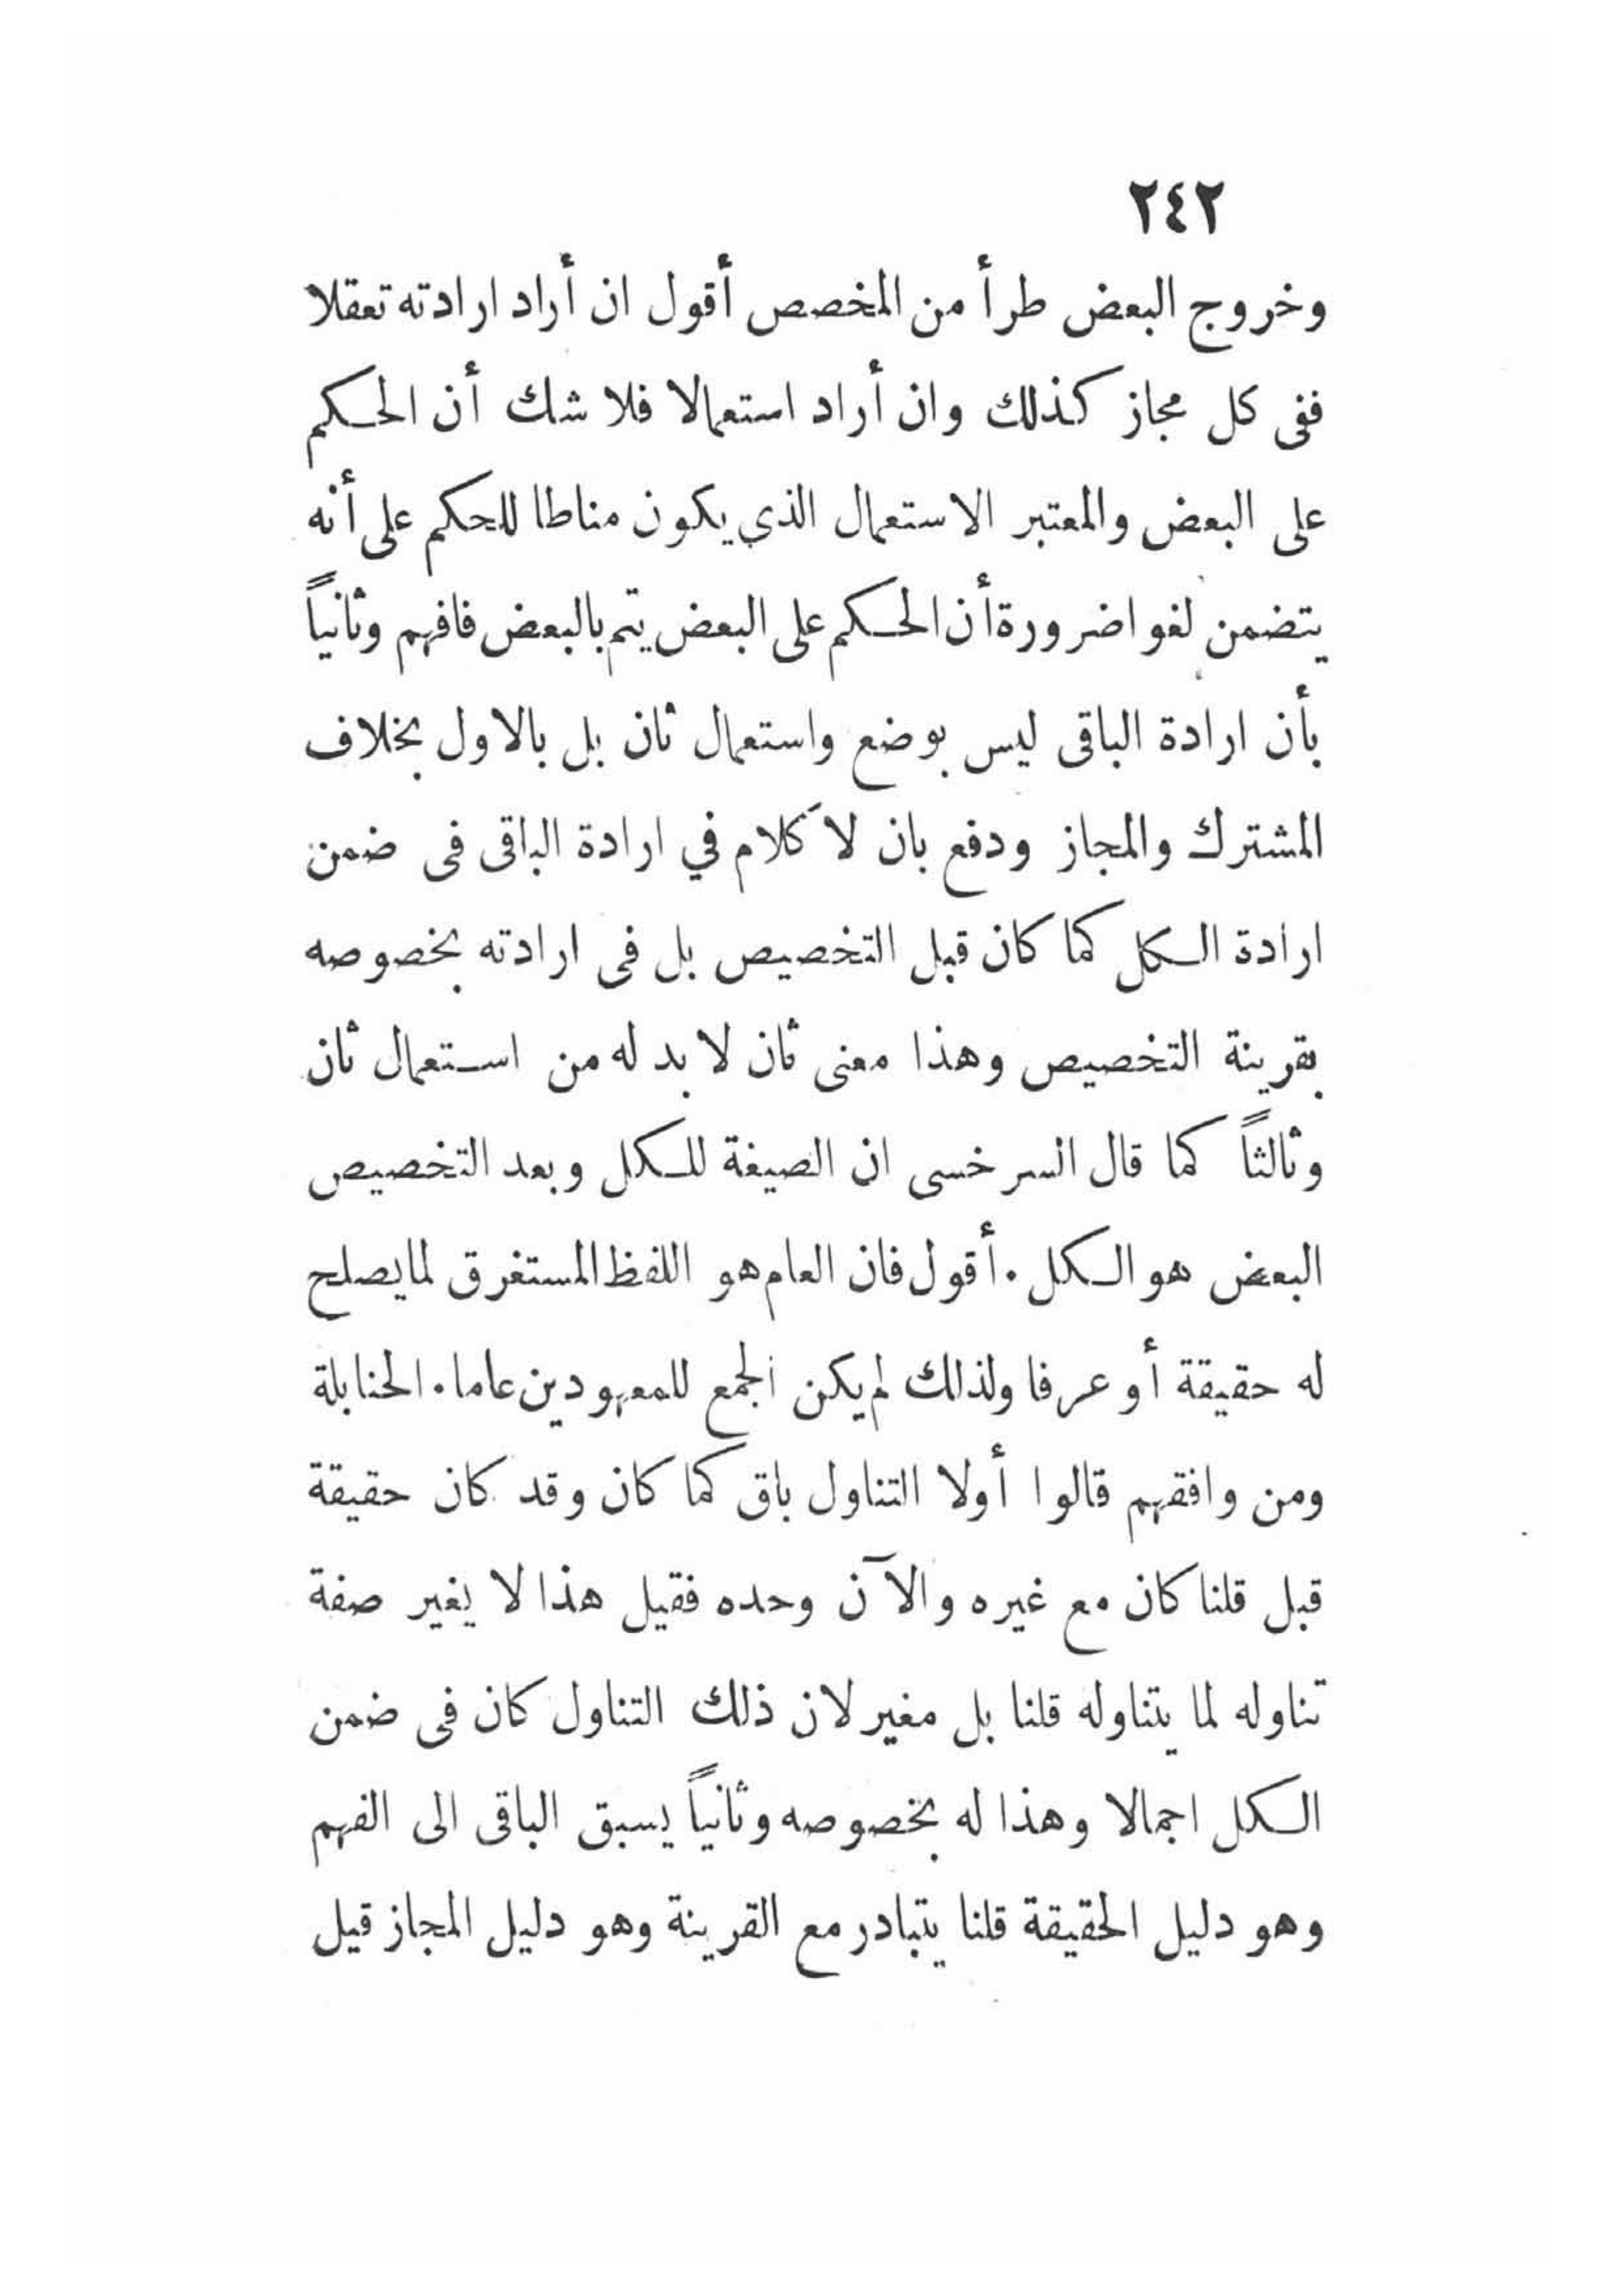 ٢٤٢
وخروج البعض طرأ من المخصص أقول ان أراد ارادته تعقلا
ففى كل مجاز كذلك وان أراد استعمالا فلا شك أن الحكم
على البعض والمعتبر الاستعمال الذي يكون مناطا للحكم على أنه
يتضمن لغوا ضرورة أن الحكم على البعض يتم بالبعض فافهم وثانياً
بأن ارادة الباقى ليس بوضع واستعمال ثان بل بالاول بخلاف
المشترك والمجاز ودفع بان لا كلام في ارادة الباقى فى ضمن
ارادة الكل كما كان قبل التخصيص بل فى ارادته بخصوصه
بقرينة التخصيص وهذا معنى ثان لا بد له من استعمال ثان
وثالثاً كما قال السرخسى ان الصيغة للكل وبعد التخصيص
البعض هو الكل . أقول فان العام هو اللفظ المستغرق لما يصلح
له حقيقة أو عرفا ولذلك لم يكن الجمع للمعهودين عاما . الحنابلة
ومن وافقهم قالوا أولا التناول باق كما كان وقد كان حقيقة
قبل قلنا كان مع غيره والآن وحده فقيل هذا لا يغير صفة
تناوله لما يتناوله قلنا بل مغير لان ذلك التناول كان فى ضمن
الكل اجمالا وهذا له بخصوصه وثانياً يسبق الباقى الى الفهم
وهو دليل الحقيقة قلنا يتبادر مع القرينة وهو دليل المجاز قيل